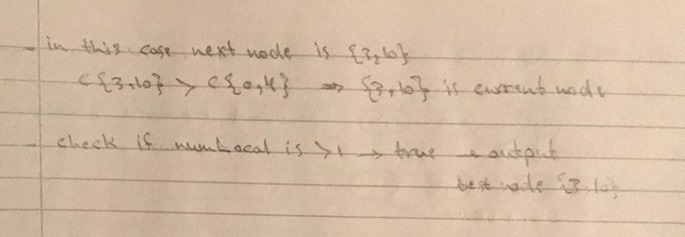 - in this case next node is {3,10}
C{3,10} > C{0,4} => {3,10} is current node
- check if numLocal is >1 → true → output
best node {3,10}